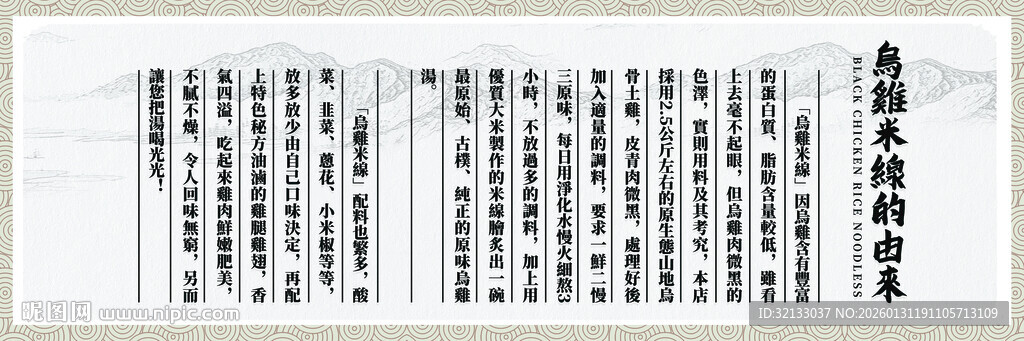 烏雞米線的由來
BLACK CHICKEN RICE NOODLESS
「烏雞米線」因烏雞含有豐富
的蛋白質、脂肪含量較低，雖看
上去毫不起眼，但烏雞肉微黑的
色澤，實則用料及其考究，本店
採用2.5公斤左右的原生態山地烏
骨土雞，皮青肉微黑，處理好後
加入適量的調料，要求一鮮二慢
三原味，每日用淨化水慢火細熬3
小時，不放過多的調料，加上用
優質大米製作的米線膾炙出一碗
最原始、古樸、純正的原味烏雞
湯。
「烏雞米線」配料也繁多，酸
菜、韭菜、蔥花、小米椒等等，
放多放少由自己口味決定，再配
上特色秘方油滷的雞腿雞翅，香
氣四溢，吃起來雞肉鮮嫩肥美，
不膩不燥，令人回味無窮，另而
讓您把湯喝光光！
昵图网 www.nipic.com
ID:32133037 NO:20260131191105713109